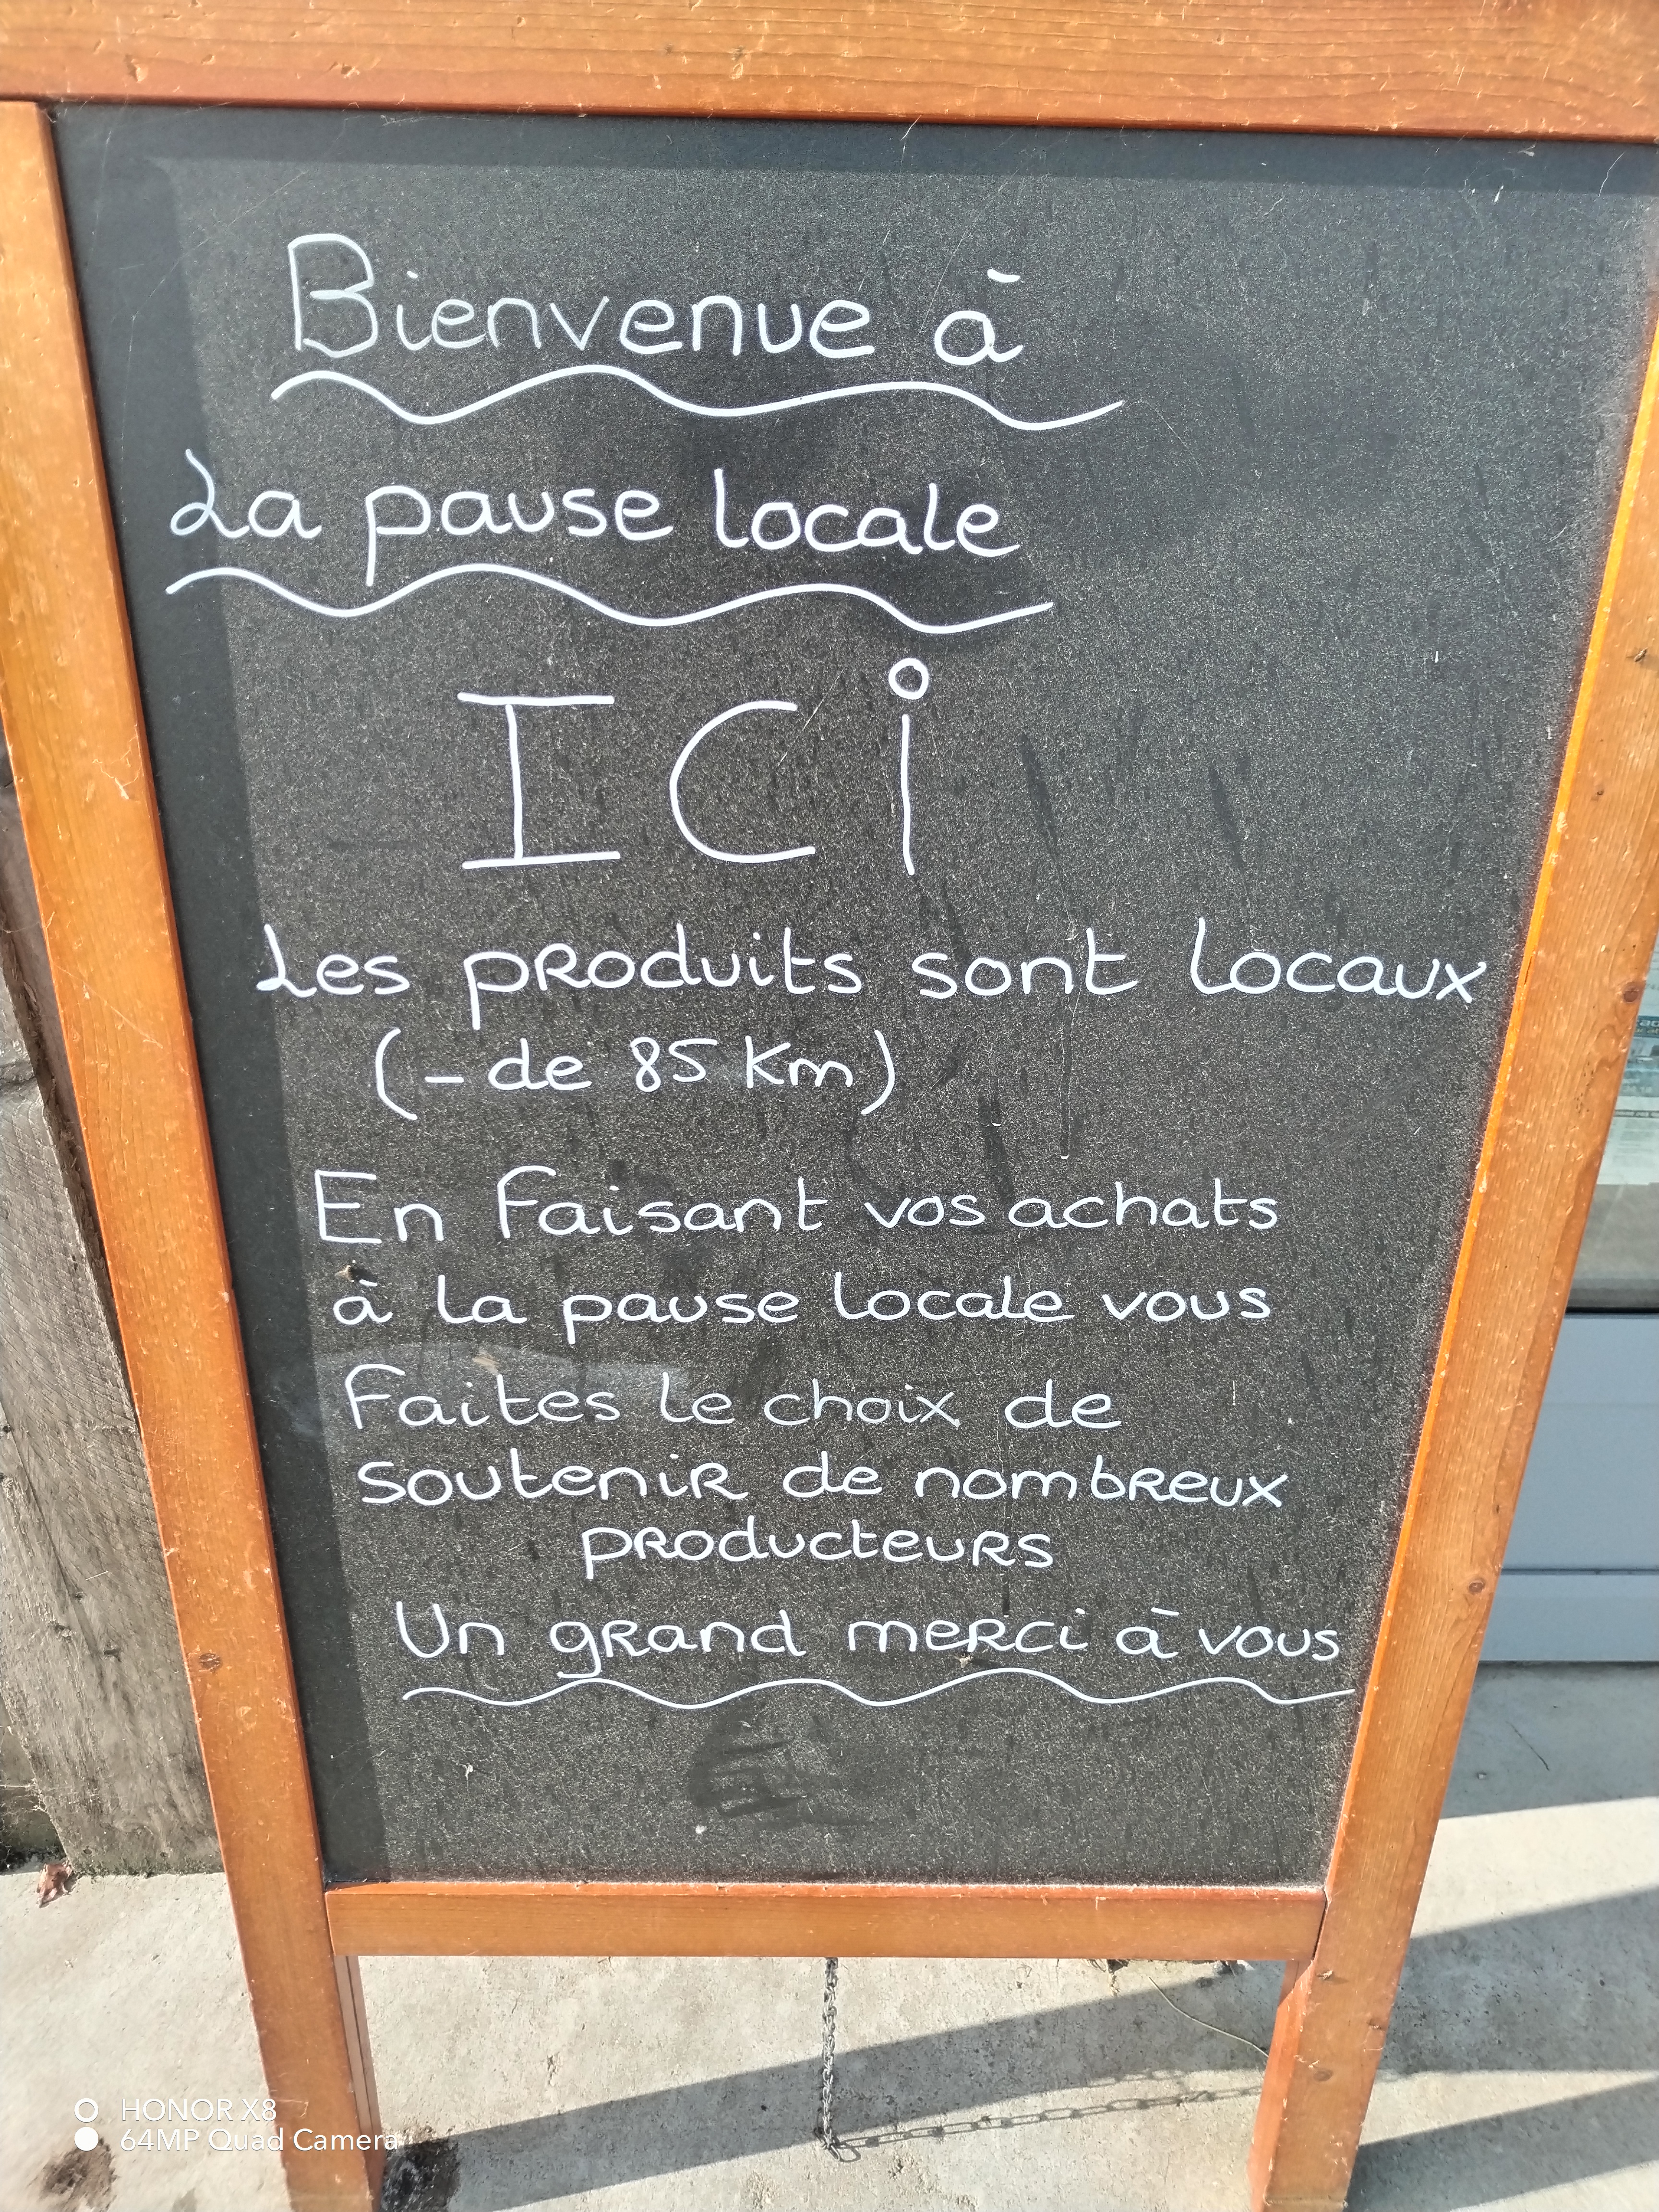 Bienvenue à
La pause locale
ICi
Les produits sont locaux
(- de 85 Km)
En faisant vos achats
à la pause locale vous
Faites le choix de
soutenir de nombreux
producteurs
Un grand merci à vous
HONOR X8
64MP Quad Camera